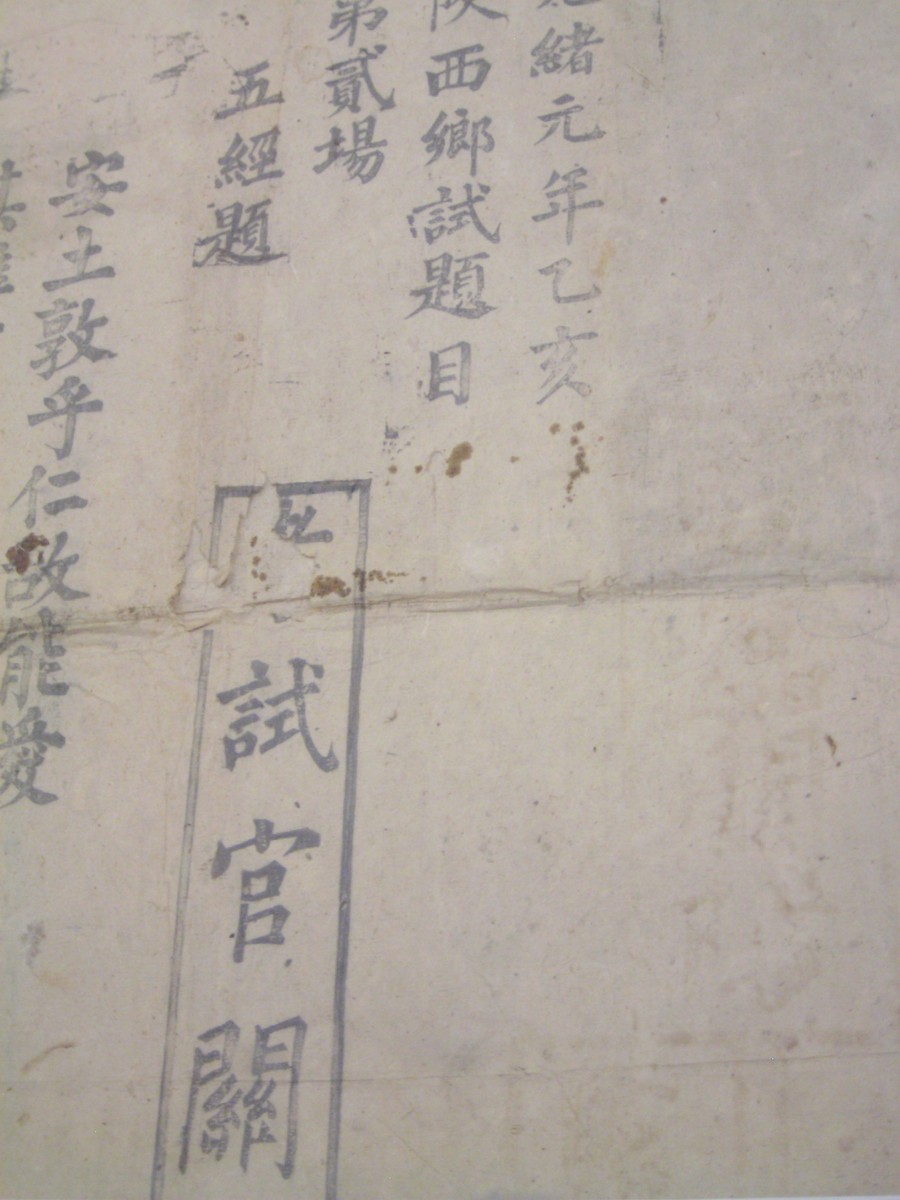 緒元年乙亥
陝西鄉試題目
第貳場
五經題
試官關
安土敦乎仁故能愛